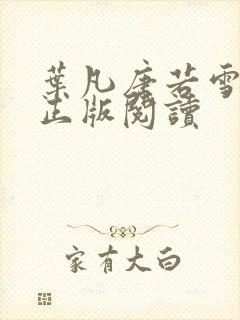 葉凡唐若雪
正版閱讀
家有大白